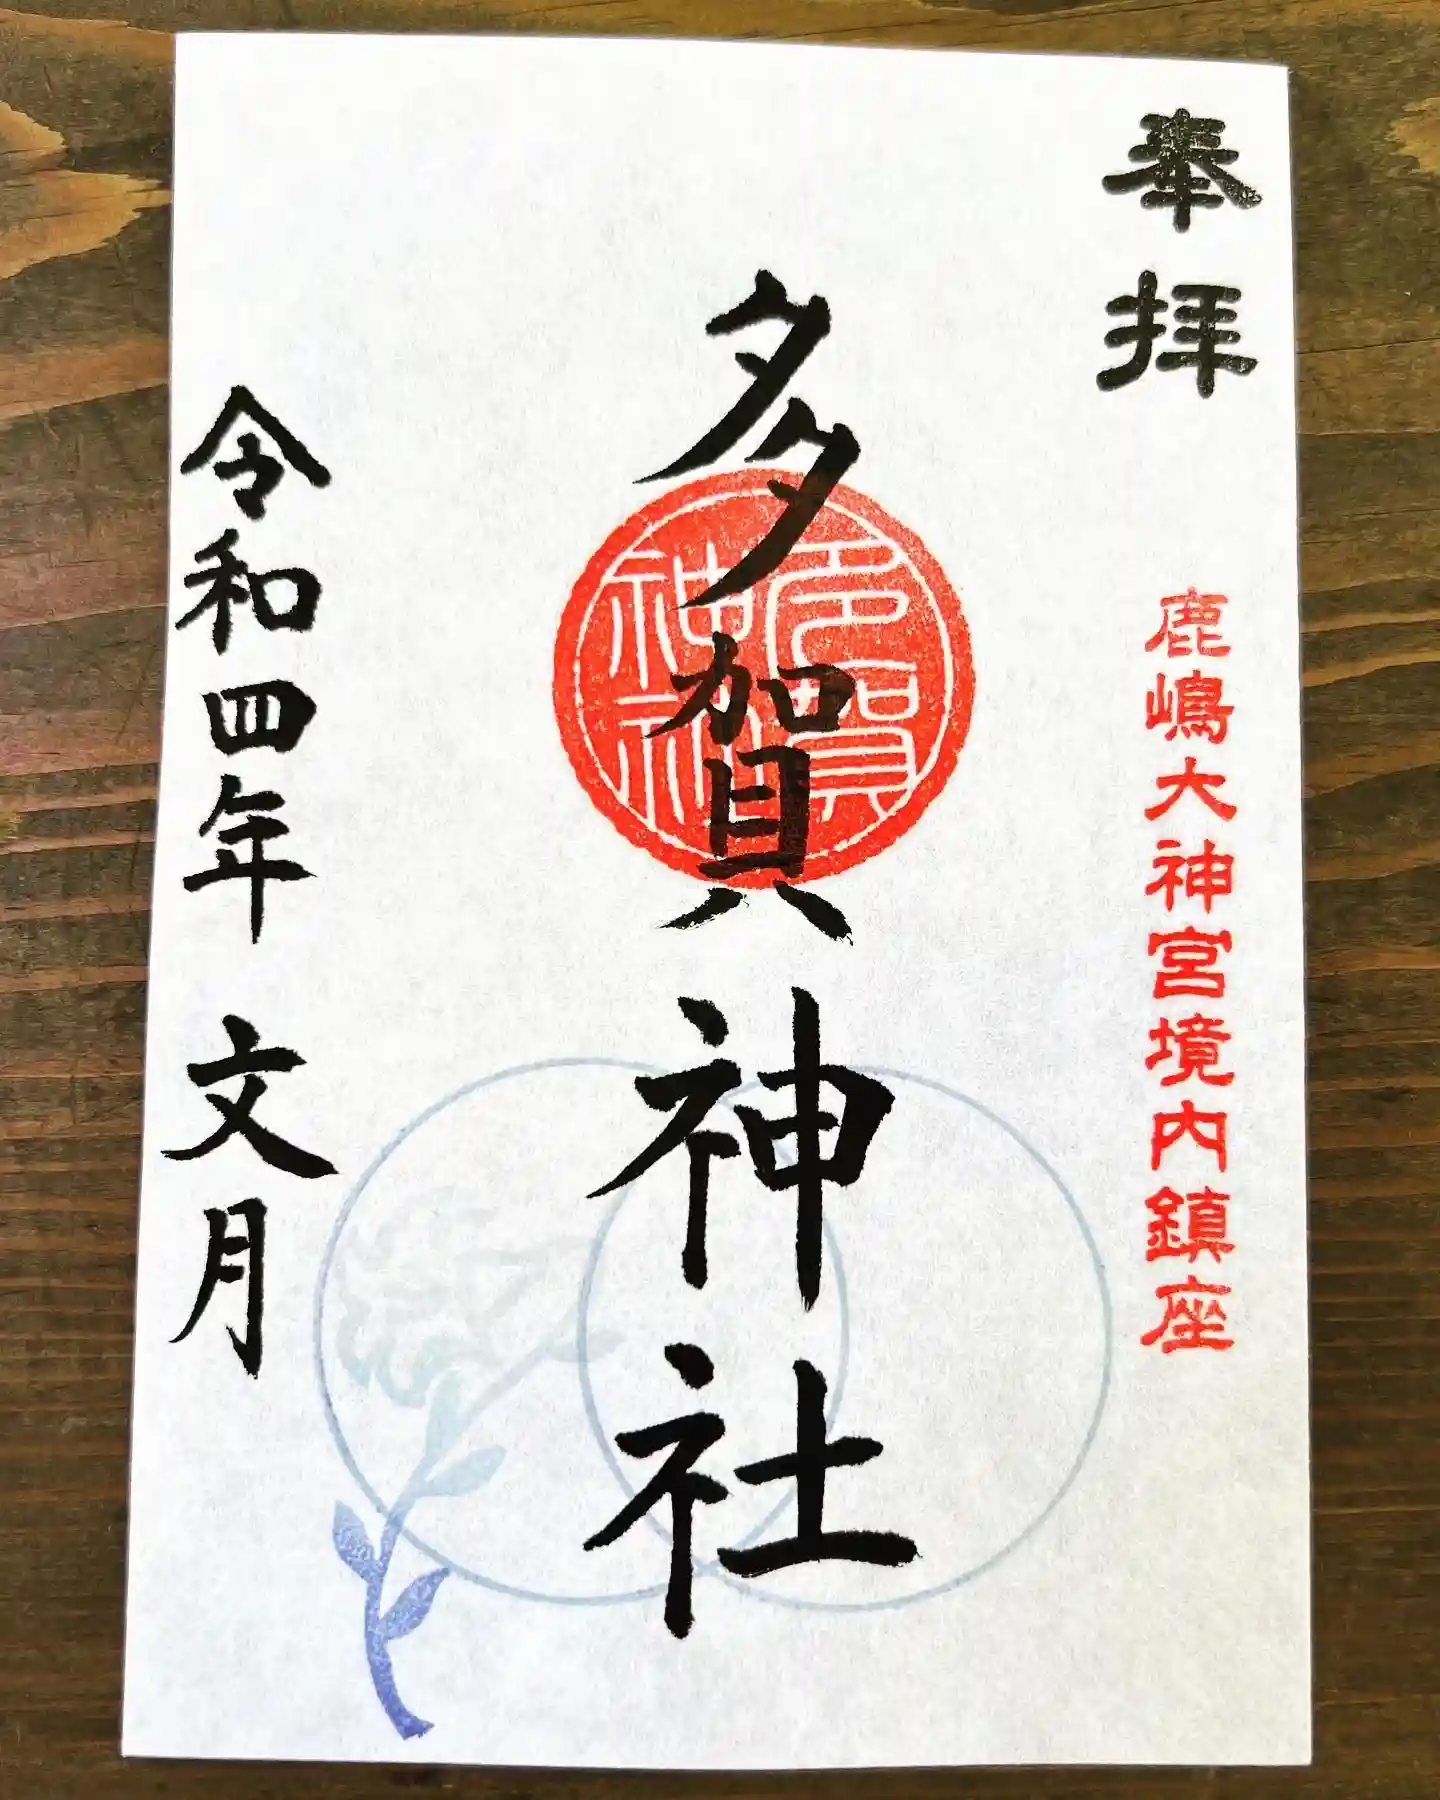 奉拝
鹿嶋大神宮境内鎮座
多賀神社
多賀神社
令和四年 文月